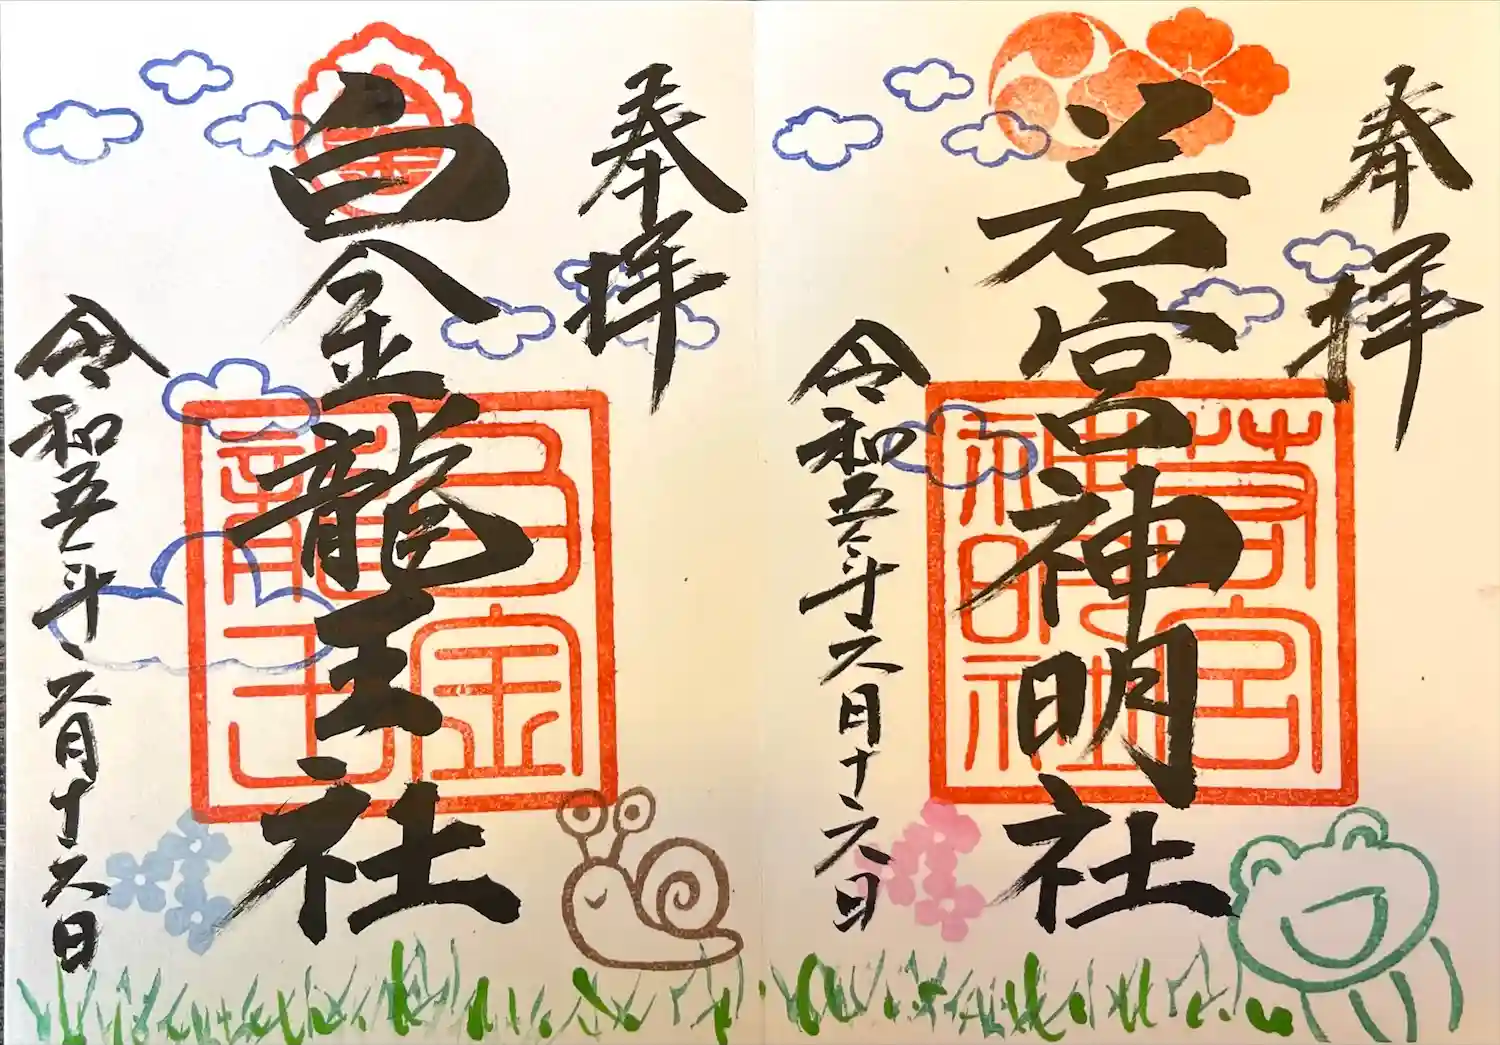 奉拝
若宮神明社
若宮
神明社
令和五年六月十六日
奉拝
白金龍王社
白金
龍王
令和五年六月十六日